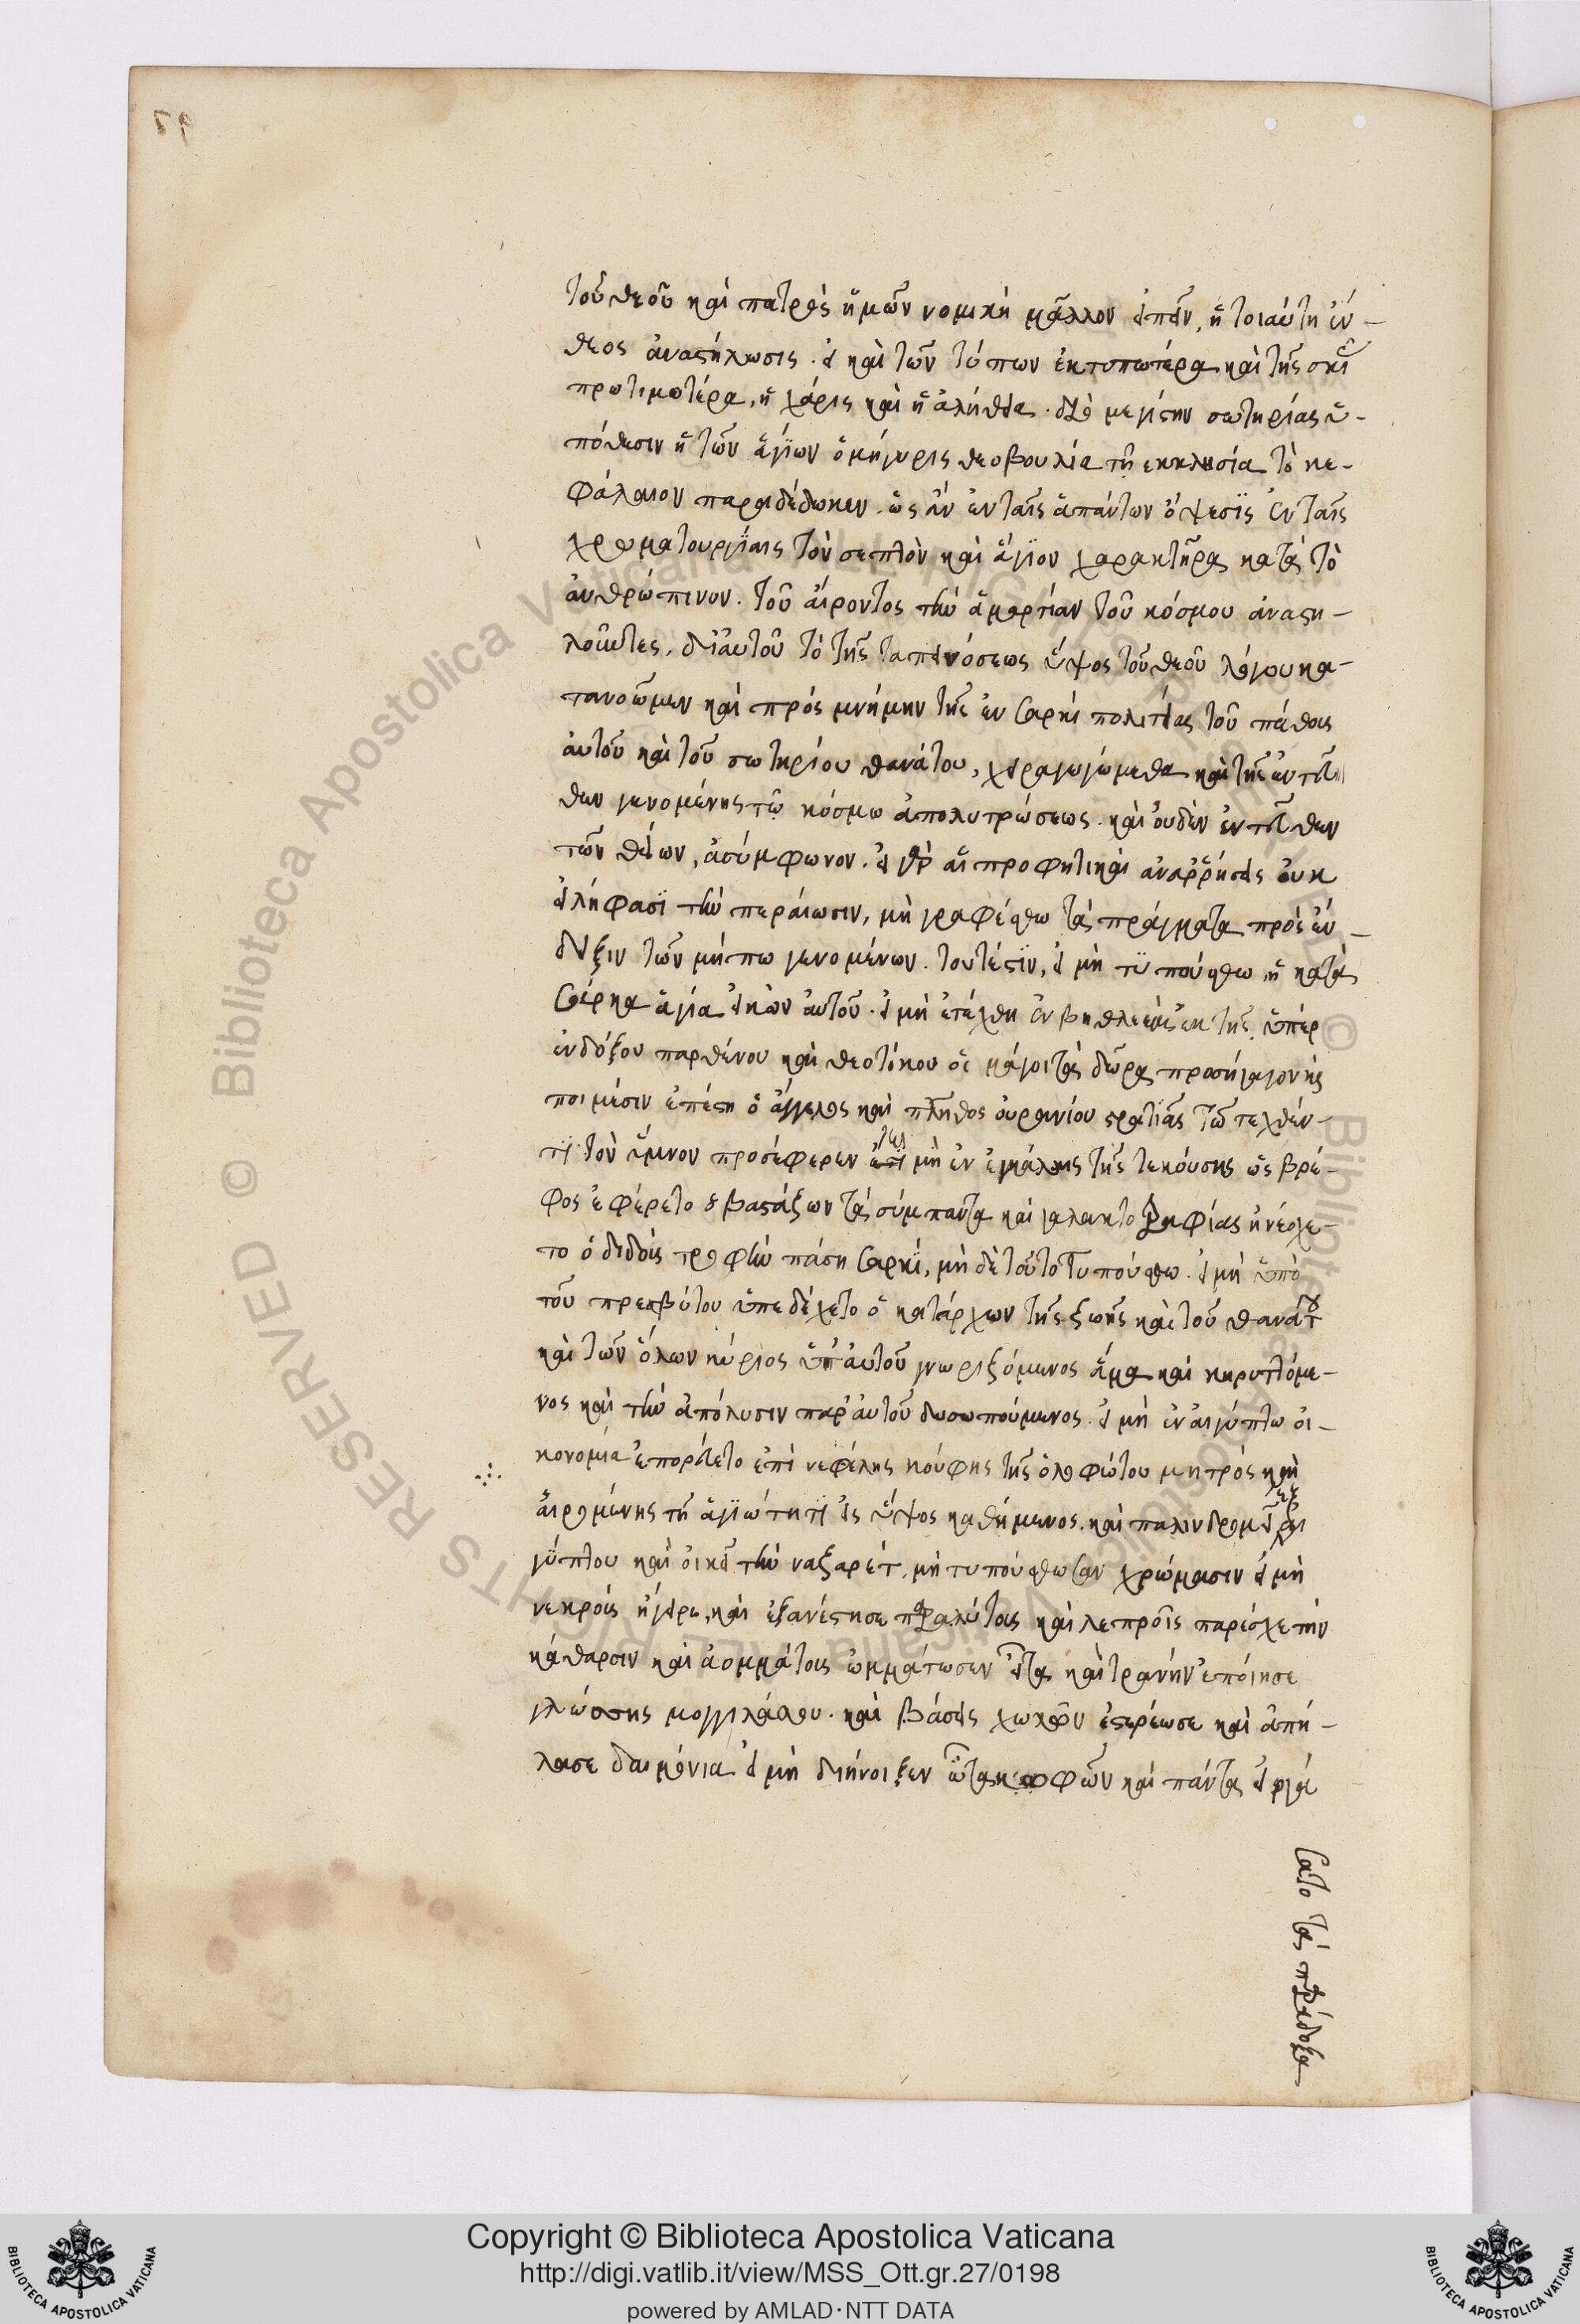 τοῦ θεοῦ καὶ πατρὸς ἡμῶν νομικὴ μᾶλλον εἰπεῖν, ἡ τοιαύτη ἔν-
θεος ἀναστήλωσις. εἰ καὶ τῶν τύπων ἐκτυπωτέρα καὶ τῆς σκιᾶς
προτιμοτέρα, ἡ χάρις καὶ ἡ ἀλήθεια. διὸ μεγίστην σωτηρίας ὑ-
πόθεσιν ἡ τῶν ἁγίων ὁμήγυρις θεοβουλία τῇ εκκλησία τὸ κε-
φάλαιον παραδέδωκεν. ὡς ἂν ἐν ταῖς ἁπάντων ὄψεσϊς ἐν ταῖς
χρωματουργΐαις τὸν σεπτὸν καὶ ἅγϊον χαρακτῆρα κατὰ τὸ
ἀνθρώπινον. τοῦ αἴροντος τὴν ἁμαρτίαν τοῦ κόσμου ἀναστη-
λοῦντες, δι' αὐτοῦ τὸ τῆς ταπεινόσεως ὕψος τοῦ θεοῦ λόγου κα-
τανοῶμεν καὶ πρὸς μνήμην τῆς ἐν σαρκὶ πολιτείας τοῦ πάθους
αὐτοῦ καὶ τοῦ σωτηρίου θανάτου, χειραγωγώμεθα καὶ τῆς ἐντεῦ
θεν γενομένης τῷ κόσμω ἀπολυτρώσεως. καὶ οὐδὲν ἐντεῦθεν
τῶν θείων, ἀσύμφωνον. εἰ γὰρ αἱ προφητικαὶ αναῤῥήσεις οὐκ
εἰλήφασϊ τὴν περαίωσιν, μὴ γραφέσθω τὰ πράγματα πρὸς ἔν-
δειξιν τῶν μήπω γενομένων. τουτέστϊν, εἰ μὴ τϋπούσθω ἡ κατὰ
σάρκα ἁγία εἰκὼν αὐτοῦ. εἰ μὴ ἐτέχθη ἐν βηθλεὲμ ἐκ τῆς ὑπερ
ενδόξου παρθένου καὶ θεοτόκου οἱ μάγοι τὰ δῶρα προσήγαγον καὶ
ποιμέσιν ἐπέστη ὁ ἄγγελος καὶ πλῆθος ουρανίου στρατιᾶς τῶ τεχθέν-
τϊ τὸν ὕμνον προσέφερεν εἰ μὴ ἐν ἀγκάλαις τῆς τεκούσης ὡς βρέ-
φος ἐφέρετο ὁ βαστάζων τὰ σύμπαντα καὶ γαλακτοτραφίας ἠνέσχε-
το ὁ διδοὺς τροφὴν πάση σαρκϊ, μὴ δὲ τοῦτο τυπούσθω. εἰ μὴ ὑπὸ
τοῦ πρεσβύτου ὑπεδέχετο ὁ κατάρχων τῆς ζωῆς καὶ τοῦ θανάτου
καὶ τῶν ὅλων κύριος ὑπ' αὐτοῦ γνωριζόμενος ἅμα καὶ κηρυττόμε-
νος καὶ τὴν ἀπόλυσιν παρ' αὐτοῦ δυσωπούμενος. εἰ μὴ ἐν αἰγύπτω οἰ-
κονομία ἐπορεύετο ἐπὶ νεφέλης κούφης τῆς ὁλοφώτου μητρὸς καὶ
αἰρομένης τῆ ἁγϊώτητϊ εἰς ὕψος καθήμενος. καὶ παλινδρομεῖ ἐξ αἰ
γύπτου καὶ οἰκεῖ τὴν ναζαρὲτ, μὴ τυπούσθωσαν χρώμασιν εἰ μὴ
νεκροὺς ἤγειρε, καὶ ἐξανέστησε παραλύτους καὶ λεπροῖς παρέσχε τὴν
κάθαρσιν καὶ ἀομμάτους ὠμμάτωσεν εἶτα καὶ τρανὴν ἐποίησε
γλώσσης μογγιλάλου. καὶ βάσεις χωλοῦ ἐστερέωσε καὶ ἀπή-
λασε δαιμόνια εἰ μὴ διήνοιξεν ὦτα κωφῶν καὶ πάντα εἰργά
σατο τὰ παράδοξα
Copyright © Biblioteca Apostolica Vaticana
http://digi.vatlib.it/view/MSS_Ott.gr.27/0198
powered by AMLAD·NTT DATA
BIBLIOTECA APOSTOLICA VATICANA
BIBLIOTECA APOSTOLICA VATICANA